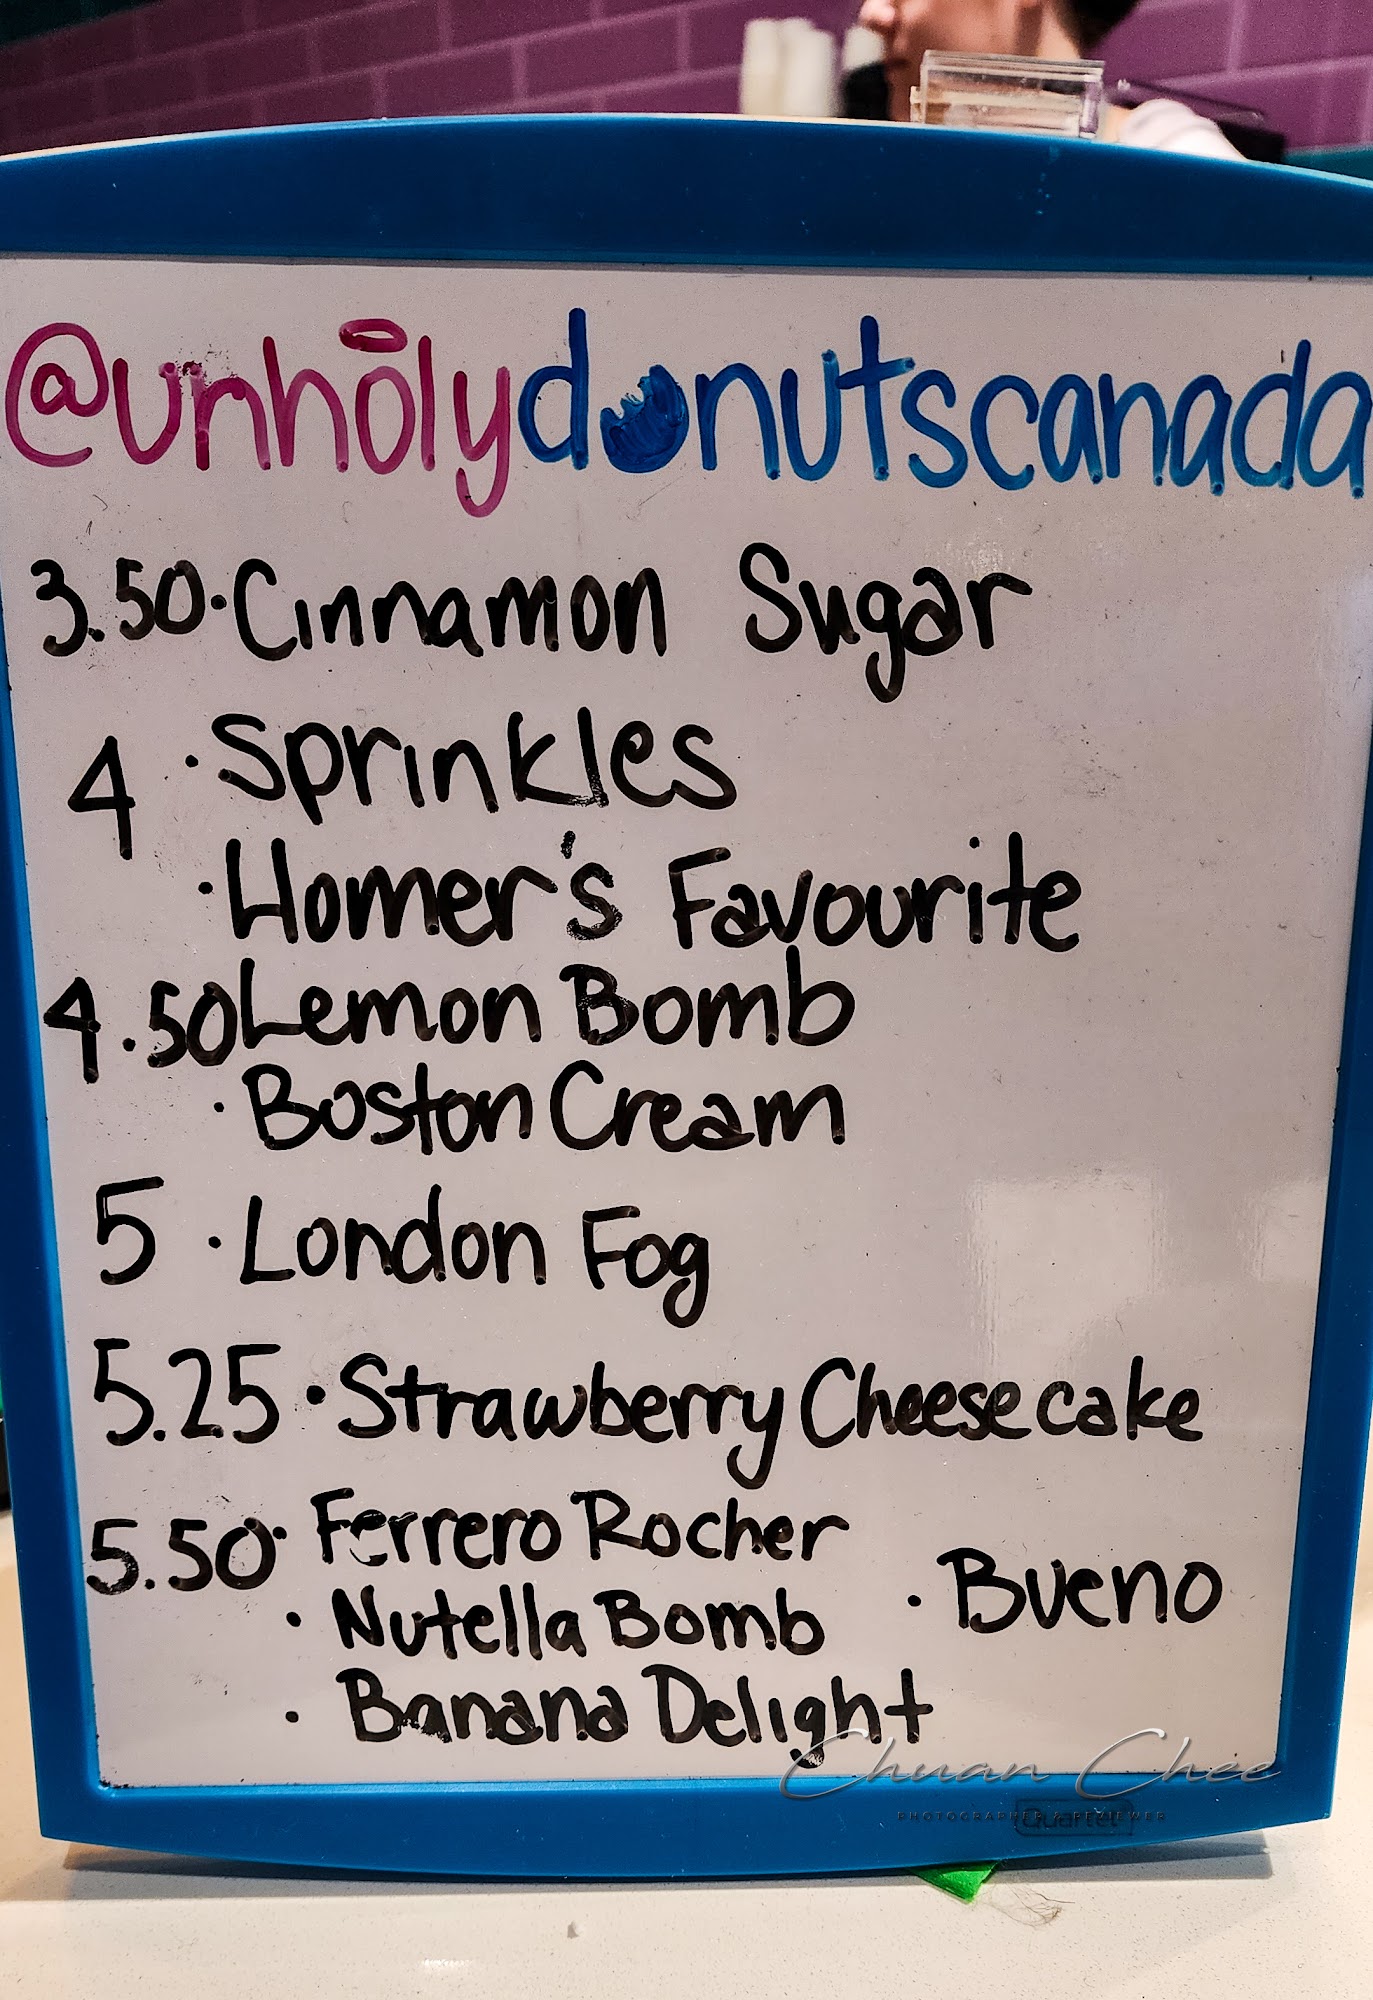 @unholydonutscanada
3.50 · Cinnamon Sugar
4 · Sprinkles
· Homer's Favourite
4.50 Lemon Bomb
· Boston Cream
5 · London Fog
5.25 · Strawberry Cheesecake
5.50 · Ferrero Rocher
· Nutella Bomb · Bueno
· Banana Delight
Chuan Chee
PHOTOGRAPHER & REVIEWER
Quartet